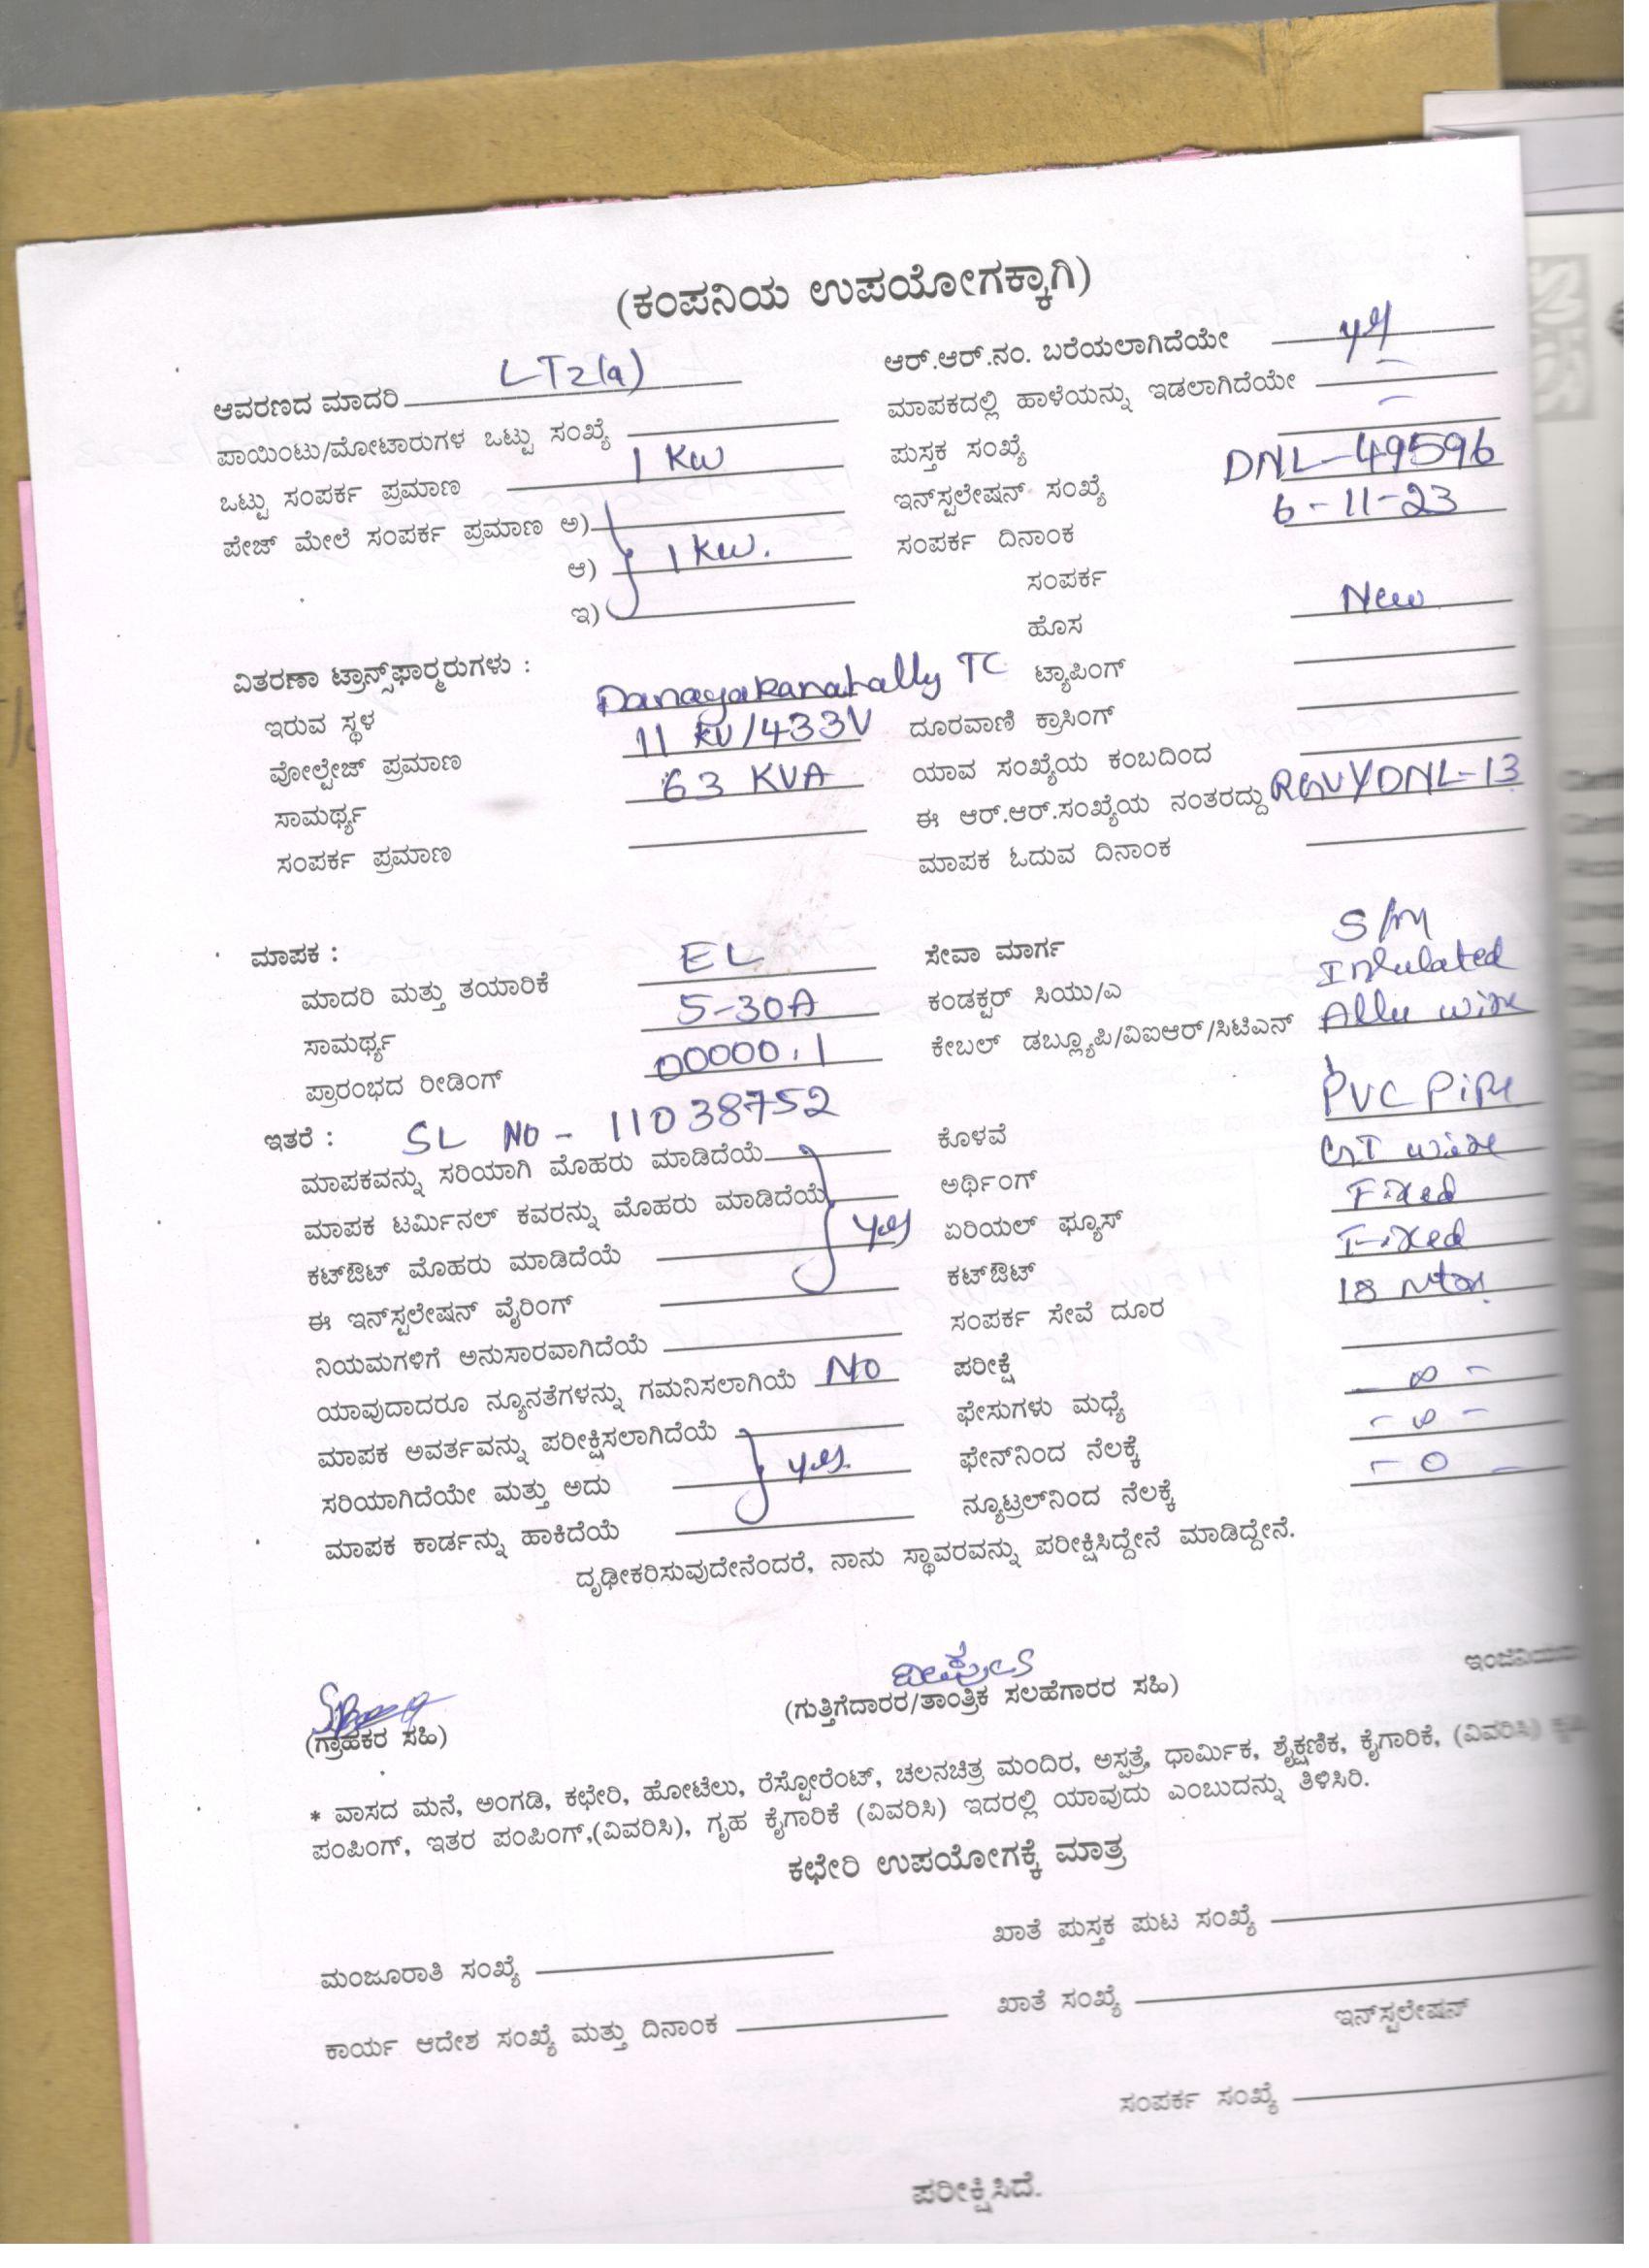 (ಕಂಪನಿಯ ಉಪಯೋಗಕ್ಕಾಗಿ)
ಆವರಣದ ಮಾದರಿ LT2(a)
ಪಾಯಿಂಟು/ಮೋಟಾರುಗಳ ಒಟ್ಟು ಸಂಖ್ಯೆ
ಒಟ್ಟು ಸಂಪರ್ಕ ಪ್ರಮಾಣ 1 KW
ಪೇಜ್ ಮೇಲೆ ಸಂಪರ್ಕ ಪ್ರಮಾಣ ಅ)
ಆ) 1 KW.
ಇ)
ಆರ್.ಆರ್.ನಂ. ಬರೆಯಲಾಗಿದೆಯೇ yes
ಮಾಪಕದಲ್ಲಿ ಹಾಳೆಯನ್ನು ಇಡಲಾಗಿದೆಯೇ –
ಪುಸ್ತಕ ಸಂಖ್ಯೆ –
ಇನ್‌ಸ್ಟಲೇಷನ್ ಸಂಖ್ಯೆ DNL-49596
ಸಂಪರ್ಕ ದಿನಾಂಕ 6-11-23
ಸಂಪರ್ಕ
ಹೊಸ New
ಟ್ಯಾಪಿಂಗ್
ದೂರವಾಣಿ ಕ್ರಾಸಿಂಗ್
ಯಾವ ಸಂಖ್ಯೆಯ ಕಂಬದಿಂದ
ಈ ಆರ್.ಆರ್.ಸಂಖ್ಯೆಯ ನಂತರದ್ದು RGVYDNL-13
ಮಾಪಕ ಓದುವ ದಿನಾಂಕ
ವಿತರಣಾ ಟ್ರಾನ್ಸ್‌ಫಾರ್ಮರುಗಳು :
ಇರುವ ಸ್ಥಳ Danayakanahally TC
ವೋಲ್ಟೇಜ್ ಪ್ರಮಾಣ 11 KV/433V
ಸಾಮರ್ಥ್ಯ 63 KVA
ಸಂಪರ್ಕ ಪ್ರಮಾಣ
ಮಾಪಕ :
ಮಾದರಿ ಮತ್ತು ತಯಾರಿಕೆ EL
ಸಾಮರ್ಥ್ಯ 5-30A
ಪ್ರಾರಂಭದ ರೀಡಿಂಗ್ 00000.1
ಇತರೆ : SL NO - 11038752
ಮಾಪಕವನ್ನು ಸರಿಯಾಗಿ ಮೊಹರು ಮಾಡಿದೆಯೆ
ಮಾಪಕ ಟರ್ಮಿನಲ್ ಕವರನ್ನು ಮೊಹರು ಮಾಡಿದೆಯೆ yes
ಕಟ್‌ಔಟ್ ಮೊಹರು ಮಾಡಿದೆಯೆ
ಈ ಇನ್‌ಸ್ಟಲೇಷನ್ ವೈರಿಂಗ್
ನಿಯಮಗಳಿಗೆ ಅನುಸಾರವಾಗಿದೆಯೆ
ಯಾವುದಾದರೂ ನ್ಯೂನತೆಗಳನ್ನು ಗಮನಿಸಲಾಗಿಯೆ NO
ಮಾಪಕ ಅವರ್ತವನ್ನು ಪರೀಕ್ಷಿಸಲಾಗಿದೆಯೆ
ಸರಿಯಾಗಿದೆಯೇ ಮತ್ತು ಅದು yes.
ಮಾಪಕ ಕಾರ್ಡನ್ನು ಹಾಕಿದೆಯೆ
ಸೇವಾ ಮಾರ್ಗ S/M
ಕಂಡಕ್ಟರ್ ಸಿಯು/ಎ Insulated
ಕೇಬಲ್ ಡಬ್ಲ್ಯೂಪಿ/ವಿಐಆರ್/ಸಿಟಿಎನ್ Allu wire
ಕೊಳವೆ PVC Pipe
ಅರ್ಥಿಂಗ್ GI wire
ಏರಿಯಲ್ ಫ್ಯೂಸ್ Fixed
ಕಟ್‌ಔಟ್ Fixed
ಸಂಪರ್ಕ ಸೇವೆ ದೂರ 18 Mtr.
ಪರೀಕ್ಷೆ
ಫೇಸುಗಳು ಮಧ್ಯೆ – ∞ –
ಫೇನ್‌ನಿಂದ ನೆಲಕ್ಕೆ – ∞ –
ನ್ಯೂಟ್ರಲ್‌ನಿಂದ ನೆಲಕ್ಕೆ – 0 –
ದೃಢೀಕರಿಸುವುದೇನೆಂದರೆ, ನಾನು ಸ್ಥಾವರವನ್ನು ಪರೀಕ್ಷಿಸಿದ್ದೇನೆ ಮಾಡಿದ್ದೇನೆ.
(ಗ್ರಾಹಕರ ಸಹಿ)
(ಗುತ್ತಿಗೆದಾರರ/ತಾಂತ್ರಿಕ ಸಲಹೆಗಾರರ ಸಹಿ)
* ವಾಸದ ಮನೆ, ಅಂಗಡಿ, ಕಛೇರಿ, ಹೋಟೆಲು, ರೆಸ್ಟೋರೆಂಟ್, ಚಲನಚಿತ್ರ ಮಂದಿರ, ಅಸ್ಪತ್ರೆ, ಧಾರ್ಮಿಕ, ಶೈಕ್ಷಣಿಕ, ಕೈಗಾರಿಕೆ, (ವಿವರಿಸಿ)
ಪಂಪಿಂಗ್, ಇತರ ಪಂಪಿಂಗ್,(ವಿವರಿಸಿ), ಗೃಹ ಕೈಗಾರಿಕೆ (ವಿವರಿಸಿ) ಇದರಲ್ಲಿ ಯಾವುದು ಎಂಬುದನ್ನು ತಿಳಿಸಿರಿ.
ಕಛೇರಿ ಉಪಯೋಗಕ್ಕೆ ಮಾತ್ರ
ಮಂಜೂರಾತಿ ಸಂಖ್ಯೆ
ಖಾತೆ ಪುಸ್ತಕ ಪುಟ ಸಂಖ್ಯೆ
ಕಾರ್ಯ ಆದೇಶ ಸಂಖ್ಯೆ ಮತ್ತು ದಿನಾಂಕ
ಖಾತೆ ಸಂಖ್ಯೆ
ಇನ್‌ಸ್ಟಲೇಷನ್
ಸಂಪರ್ಕ ಸಂಖ್ಯೆ
ಪರೀಕ್ಷಿಸಿದೆ.